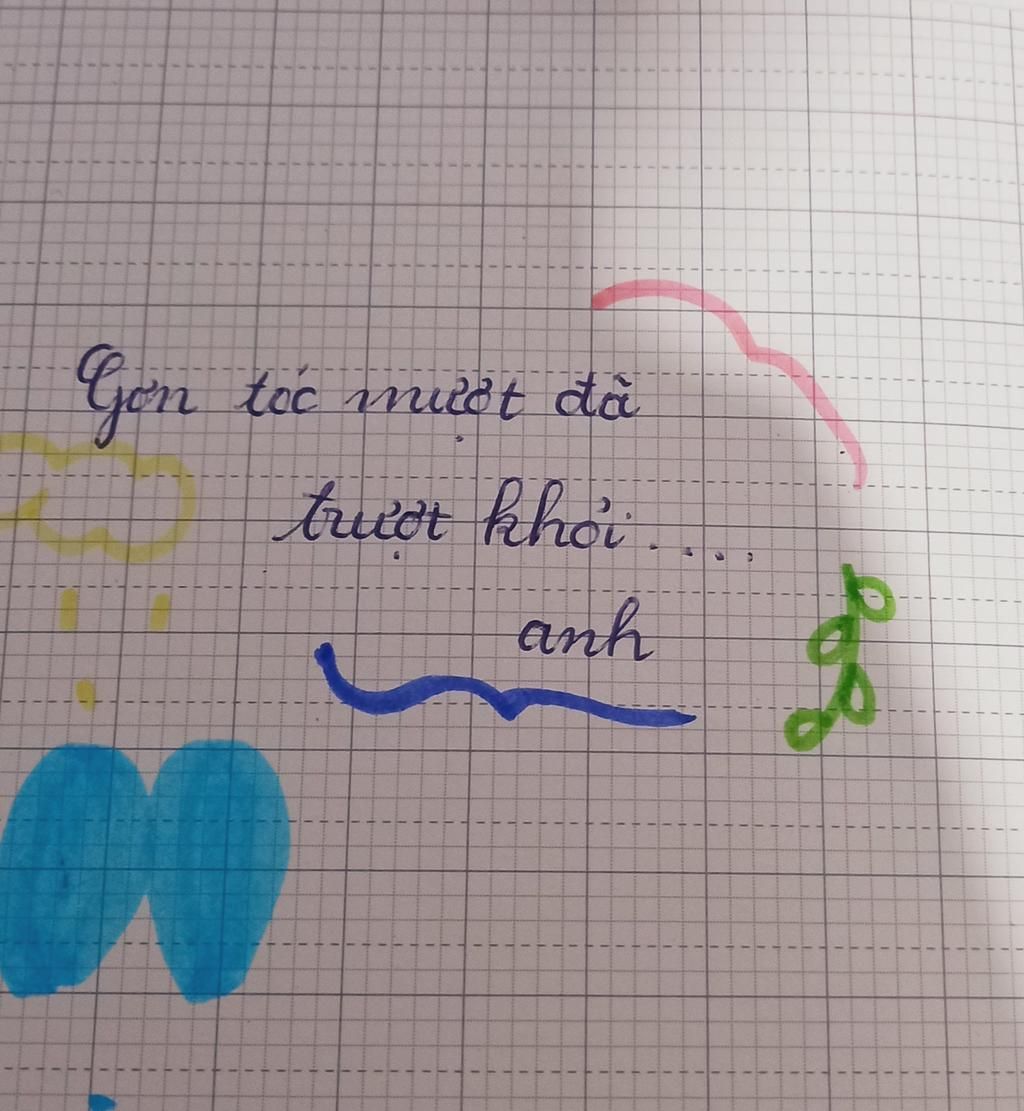 Gợn tóc mượt đà
trượt khỏi....
anh